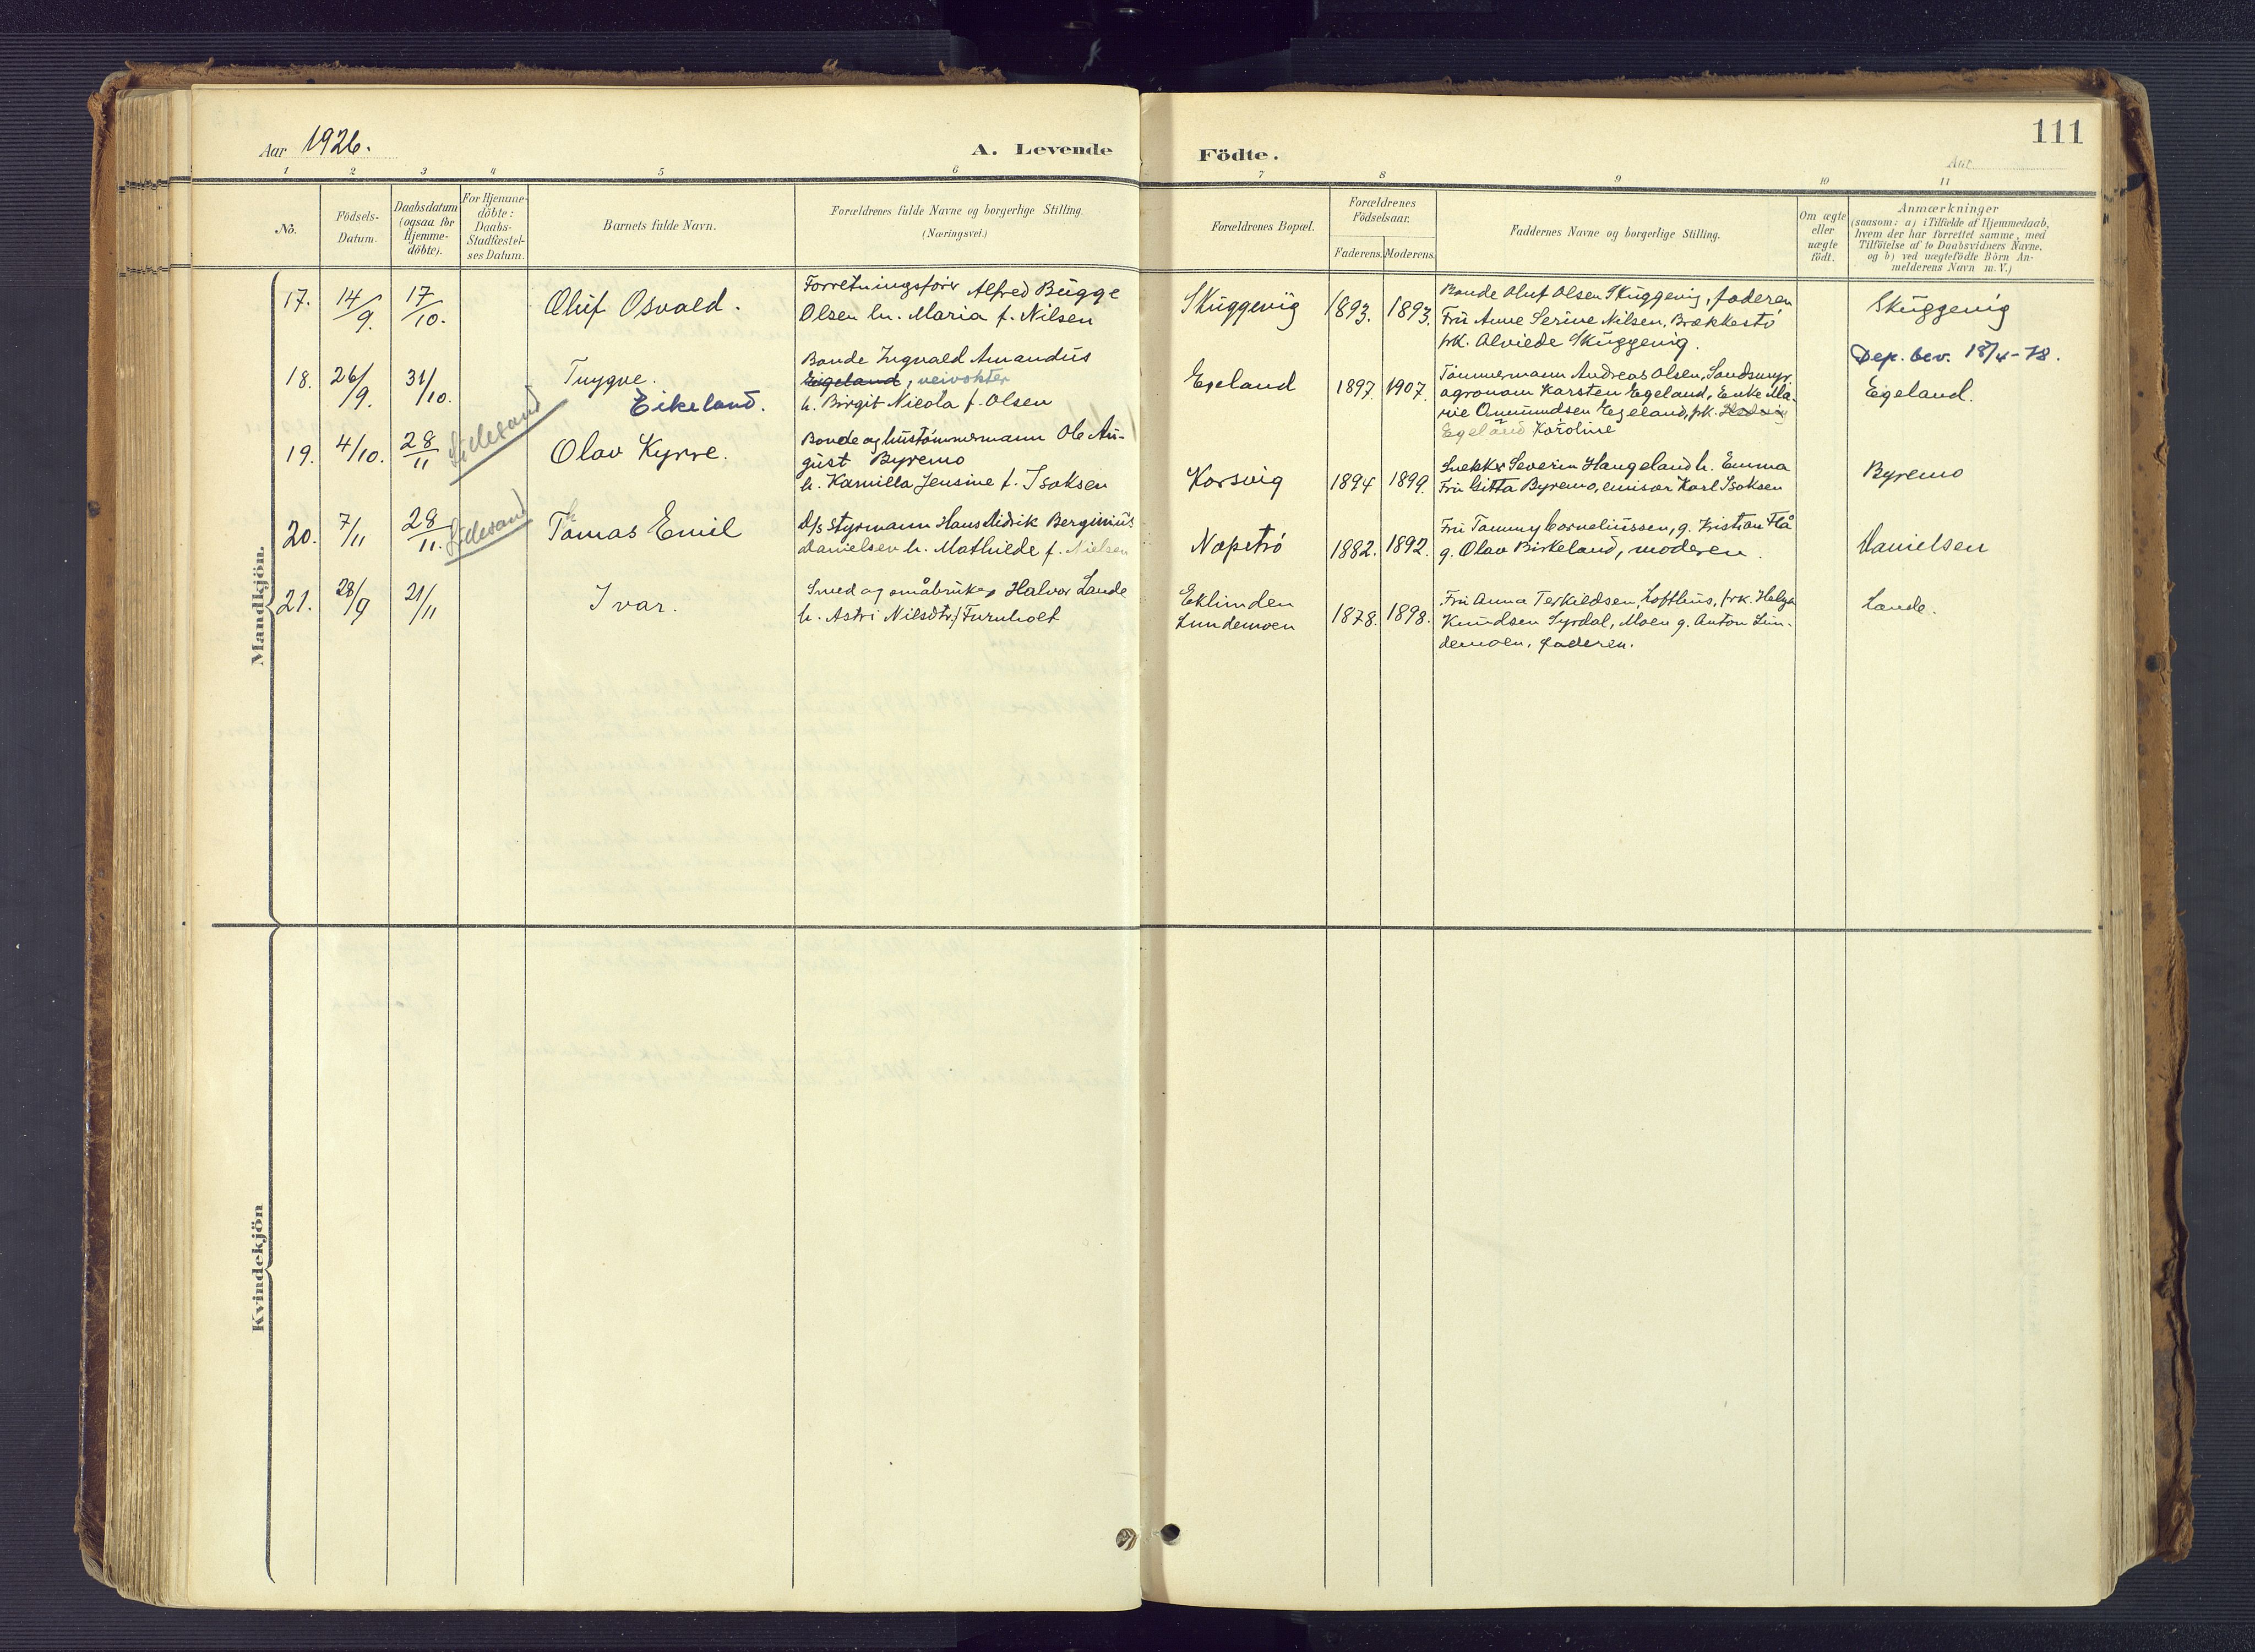 Aar 1926.
A. Levende Födte.
111
Aar
1 2 3 4 5 6 7 8 9 10 11
No.
Födsels-
Datum.
Daabsdatum
(ogsaa for
Hjemme-
döbte).
For Hjemme-
döbte:
Daabs-
Stadfæstel-
ses Datum.
Barnets fulde Navn.
Forældrenes fulde Navne og borgerlige Stilling.
(Næringsvei.)
Forældrenes Bopæl.
Forældrenes
Födselsaar.
Faderens. Moderens.
Faddernes Navne og borgerlige Stilling.
Om ægte
eller
uægte
födt.
Anmærkninger
(saasom: a) i Tilfælde af Hjemmedaab,
hvem der har forrettet samme, med
Tilföielse af to Daabsvidners Navne,
og b) ved uægtefödte Börn An-
melderens Navn m. V.)
Mandkjön.
17. 14/9. 17/10.
Oluf Osvald.
Forretningsförer Alfred Bugge
Olsen h. Maria f. Nilsen
Skuggevig
1893. 1893.
Bonde Oluf Olsen Skuggevig, faderen
Fru Anne Serine Nilsen, Brækkestö
frk. Alviede Skuggevig.
Skuggevig
18. 26/9. 31/10.
Trygve.
Eikeland.
Bonde Ingvald Amandus
Eigeland, veivokter
h. Birgit Nicola f. Olsen
Egeland
1897. 1907.
Tömmermann Andreas Olsen, Sandsmyr
agronom Karsten Egeland, Enke Ma-
rie Ommundsen Egeland, frk. Hedvig
Egeland Karoline
Dep. bev. 18/4-78.
Egeland.
19. 4/10. 28/11
Lillesand
Olav Kyrre.
Bonde og hustömmermann Ole Au-
gust Byremo
h. Kamilla Jensine f. Isaksen
Korsvig
1894 1899.
Snekker Severin Haugeland h. Emma
Fru Gitta Byremo, emisær Karl Isaksen
Byremo
20. 7/11 28/11.
Lillesand
Tomas Emil
D/S styrmann Hans Didrik Berginius
Danielsen h. Mathilde f. Nielsen
Napetrö
1882. 1892.
Fru Tommy Corneliussen, g. Kristian Flå
g. Olav Birkeland, moderen.
Danielsen
21. 28/9 21/11
Ivar.
Smed og småbruker Halvor Lande
h. Astri Nilsdtr. f. Furuholt
Eklimden
Lundemoen
1878. 1898.
Fru Anna Terkildsen, Lofthus, frk. Helga
Knudsen Syrdal, Moen g. Anton Lun-
demoen, faderen.
Lande.
Kvindekjön